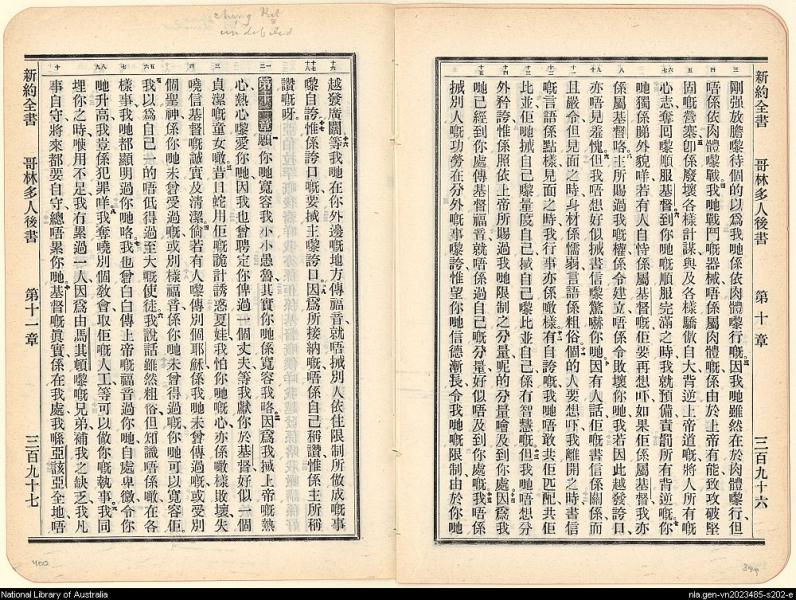 新約全書 哥林多人後書 第十章 三百九十六
剛强放膽嚟待個的以爲我哋係依肉體嚟行嘅因我哋雖然在於肉體嚟行但
唔係依肉體嚟戰我哋戰鬥嘅器械唔係屬肉體嘅係由於上帝有能致攻破堅
固嘅營寨卽係廢壞各樣計謀與及各樣驕傲自大背逆上帝道嘅將人所有嘅
心志奪回嚟順服基督到你哋嘅順服完滿之時我就預備責罰所有背逆嘅你
哋獨係睇外貌咩若有人自恃係屬基督嘅佢要再想吓如果佢係屬基督我亦
係屬基督咯主所賜過我嘅權係令建立唔係令敗壞你哋我若因此越發誇口
亦唔見羞愧但我唔想好似揻書信嚟驚嚇你哋因有人話佢嘅書信係關係而
且嚴令但見面之時身材係懦弱言語係粗俗個的人要想吓我離開之時書信
嘅言語係點樣見面之時我行事亦係噉樣有自誇嘅我哋唔敢共佢匹配共佢
比並佢哋揻自己嚟量度自己揻自己嚟比並自己係冇智慧嘅但我哋唔想分
外矜誇惟係照依上帝所賜過我哋限制之分量呢的分量噲及到你處因爲我
哋已經到你處傳基督福音就唔係過自己嘅分量好似唔及到你處嘅我唔係
揻別人嘅功勞在分外嘅事嚟誇惟望你哋信德漸長令我哋嘅限制由於你哋
越發廣闊等我哋在你外邊嘅地方傳福音就唔揻別人依住限制所做成嘅事
嚟自誇惟係誇口嘅要揻主嚟誇口因爲所接納嘅唔係自己稱讚惟係主所稱
讚嘅呀
第十一章願你哋寬容我小小愚魯其實你哋係寬容我咯因爲我揻上帝嘅熱
心熱心嚟愛你哋因我也曾聘定你俾過一個丈夫等我獻你於基督好似一個
貞潔嘅童女噉昔日蛇用佢嘅詭計誘惑夏娃我怕你哋嘅心亦係噉樣敗壞失
嘵信基督嘅誠實及清潔倘若有人嚟傳別個耶穌係我哋未曾傳過嘅或受別
個聖神係你哋未曾受過嘅或別樣福音係你哋未曾得過嘅你哋可以寬容佢
我以爲自己一的唔低得過至大嘅使徒我說話雖然粗俗但知識唔係噉在各
樣事我哋都顯明過你哋咯我也曾白白傳上帝嘅福音過你哋自處卑微令你
哋升高我豈係犯罪咩我奪嘵別個敎會取佢嘅人工等可以做你嘅執事我同
埋你之時喺用不足我冇累過一人因爲由馬其頓嚟嘅兄弟補我之缺乏我凡
事自守將來都要自守總唔累你哋基督嘅眞實係在我處我喺亞該亞全地唔
新約全書 哥林多人後書 第十一章 三百九十七
National Library of Australia
nla.gen-vn2023485-s202-e